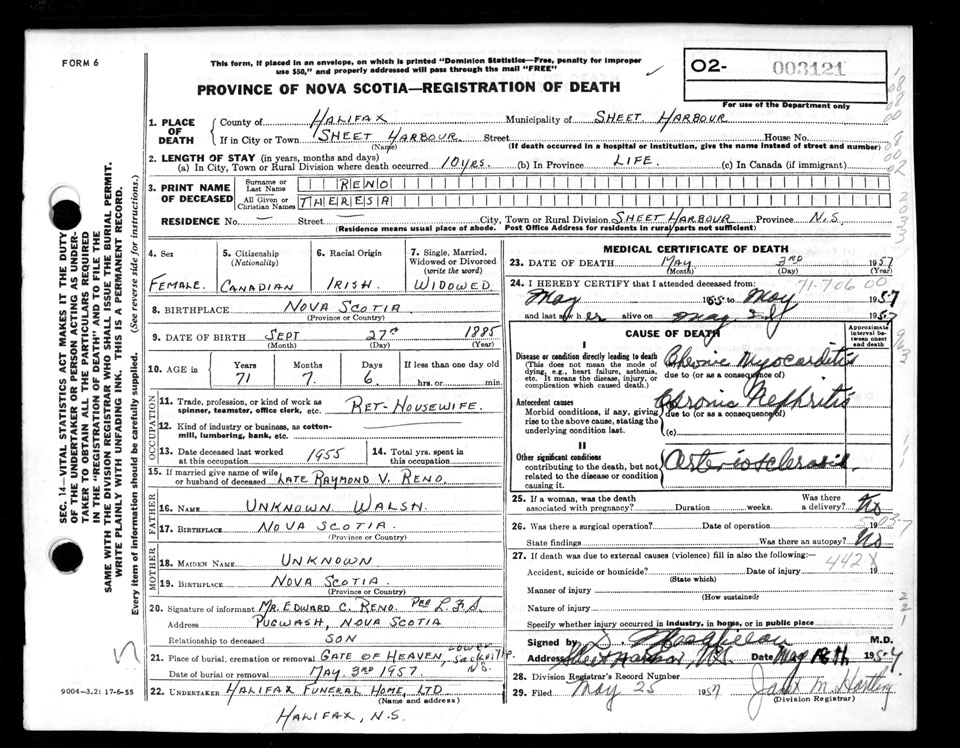 FORM 6
This form, if placed in an envelope, on which is printed "Dominion Statistics—Free, penalty for improper
use $50," and properly addressed will pass through the mail "FREE"
PROVINCE OF NOVA SCOTIA—REGISTRATION OF DEATH
O2- 003121
For use of the Department only
1. PLACE OF DEATH
County of HALIFAX Municipality of SHEET HARBOUR
If in City or Town SHEET HARBOUR Street House No.
(Name) (If death occurred in a hospital or institution, give the name instead of street and number)
2. LENGTH OF STAY (in years, months and days)
(a) In City, Town or Rural Division where death occurred 10 YRS. (b) In Province LIFE. (c) In Canada (if immigrant)
3. PRINT NAME OF DECEASED
Surname or Last Name RENO
All Given or Christian Names THERESA
RESIDENCE No. — Street — City, Town or Rural Division SHEET HARBOUR Province N.S.
(Residence means usual place of abode. Post Office Address for residents in rural parts not sufficient)
4. Sex FEMALE.
5. Citizenship (Nationality) CANADIAN
6. Racial Origin IRISH.
7. Single, Married, Widowed or Divorced (write the word) WIDOWED
8. BIRTHPLACE NOVA SCOTIA
(Province or Country)
9. DATE OF BIRTH SEPT 27th 1885
(Month) (Day) (Year)
10. AGE in Years Months Days If less than one day old
71 7. 6. hrs. or min.
OCCUPATION
11. Trade, profession, or kind of work as spinner, teamster, office clerk, etc. RET-HOUSEWIFE.
12. Kind of industry or business, as cotton-mill, lumbering, bank, etc.
13. Date deceased last worked at this occupation 1955
14. Total yrs. spent in this occupation
15. If married give name of wife or husband of deceased LATE RAYMOND V. RENO.
FATHER
16. NAME UNKNOWN WALSH.
17. BIRTHPLACE NOVA SCOTIA.
(Province or Country)
MOTHER
18. MAIDEN NAME UNKNOWN
19. BIRTHPLACE NOVA SCOTIA.
(Province or Country)
20. Signature of informant MR. EDWARD C. RENO. PER L.F.S.
Address PUGWASH, NOVA SCOTIA
Relationship to deceased SON
21. Place of burial, cremation or removal GATE OF HEAVEN, LOWER SACKVILLE. N.S.
Date of burial or removal MAY. 3RD 1957.
22. UNDERTAKER HALIFAX FUNERAL HOME, LTD
(Name and address)
HALIFAX, N.S.
MEDICAL CERTIFICATE OF DEATH
23. DATE OF DEATH MAY 3RD 1957
(Month) (Day) (Year)
71-706 00
24. I HEREBY CERTIFY that I attended deceased from:
May 1955 to May 1957
and last saw her alive on May 2nd 1957
CAUSE OF DEATH
Approximate interval between onset and death
I
Disease or condition directly leading to death
(This does not mean the mode of dying, e.g., heart failure, asthenia, etc. It means the disease, injury, or complication which caused death.)
Chronic Myocarditis
due to (or as a consequence of)
Antecedent causes
Morbid conditions, if any, giving rise to the above cause, stating the underlying condition last.
Chronic Nephritis
due to (or as a consequence of)
(c)
II
Other significant conditions
contributing to the death, but not related to the disease or condition causing it.
Arteriosclerosis.
25. If a woman, was the death associated with pregnancy? Duration weeks. Was there a delivery? No
26. Was there a surgical operation? Date of operation 19
State findings Was there an autopsy? No
27. If death was due to external causes (violence) fill in also the following:—
442X
Accident, suicide or homicide? Date of injury 19
(State which)
Manner of injury
(How sustained)
Nature of injury
Specify whether injury occurred in industry, in home, or in public place
Signed by M.D.
Address Sheet Harbour, N.S. Date May 1957
28. Division Registrar's Record Number
29. Filed May 25 1957
(Division Registrar)
SEC. 14—VITAL STATISTICS ACT MAKES IT THE DUTY
OF THE UNDERTAKER OR PERSON ACTING AS UNDER-
TAKER TO OBTAIN ALL THE PARTICULARS REQUIRED
IN THE "REGISTRATION OF DEATH" AND TO FILE THE
SAME WITH THE DIVISION REGISTRAR WHO SHALL ISSUE THE BURIAL PERMIT.
WRITE PLAINLY WITH UNFADING INK. THIS IS A PERMANENT RECORD.
Every item of information should be carefully supplied. (See reverse side for instructions.)
9004—3.2: 17-6-55